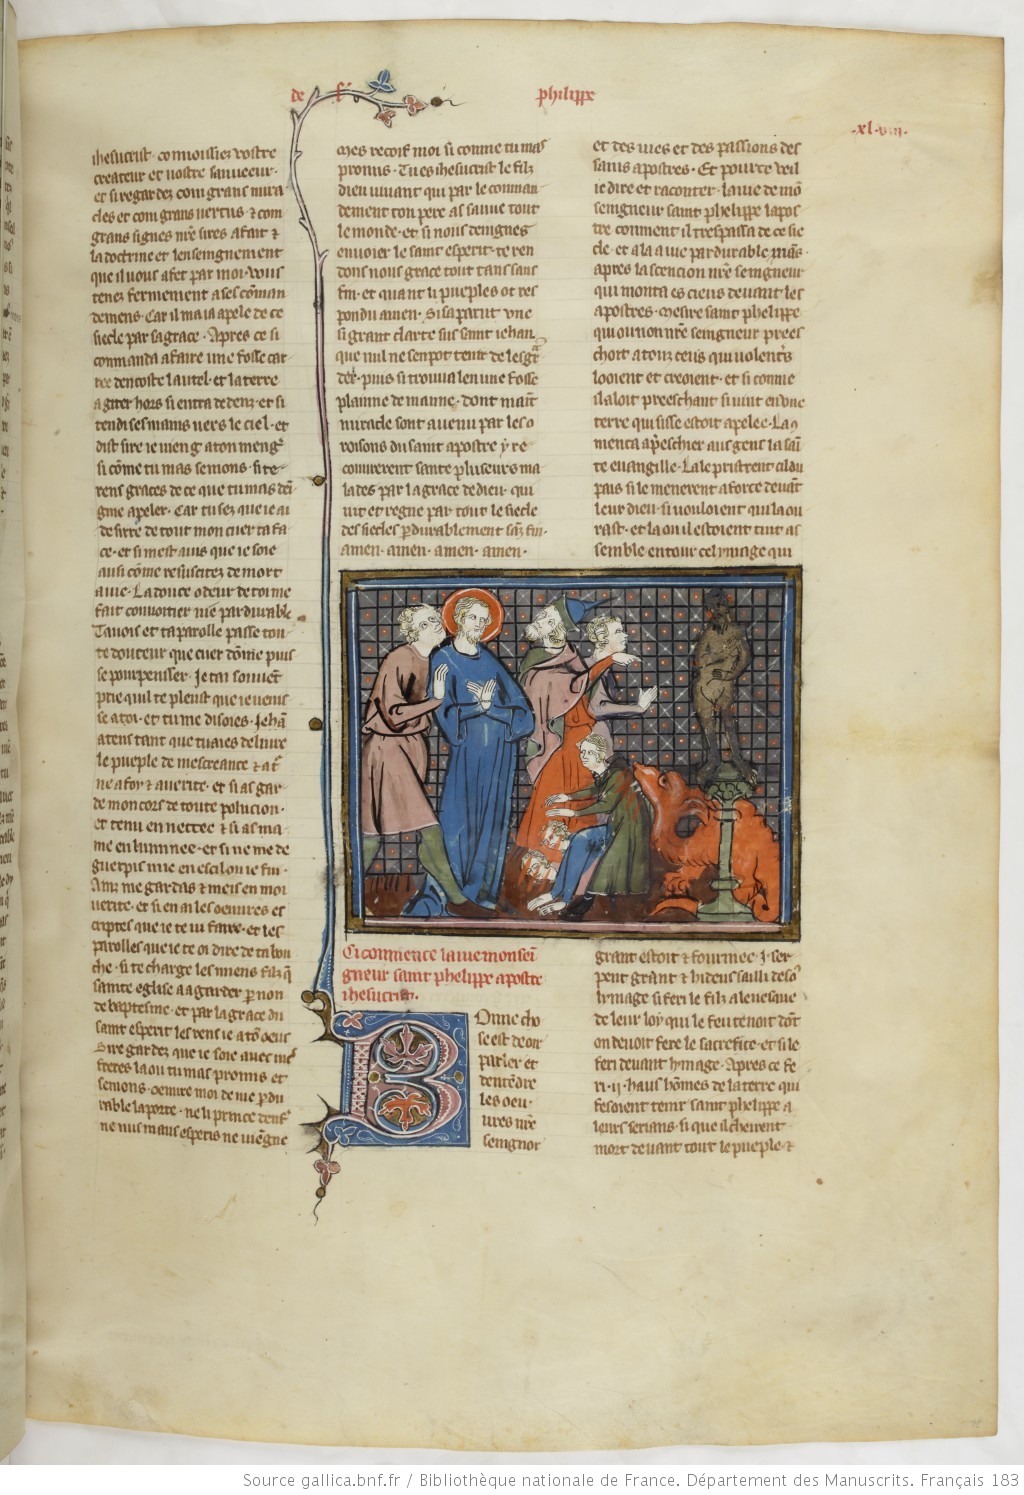 de s' phelippe
.xl.viii.
ihesucrist. connoissiez vostre
createur et vostre sauueeur.
et si regardez com grans mira
cles et com grans vertus. & com
grans signes nr̃e sires a fait &
la doctrine et lenseingnement
que il uous a fet par moi. vous
tenez fermement a ses cōman
demens. Car il ma ia apele de ce
siecle par sa grace. Apres ce si
commanda a faire une fosse car
ree dencoste lautel. et la terre
a giter hors si entra dedenz. et si
tendi ses mains uers le ciel. et
dist sire ie uieng a ton meng'.
si cōme tu mas semons. si te
rens graces de ce que tu mas
gme apeler. Car tu sez que ie ai
desirre de tout mon cuer ta fa
ce. et si mest auis que ie soie
ausi cōme resuscitez de mort
a uie. La douce odeur de toi me
fait conuoitier uie pardurable
Ta uois et ta parolle passe tou
te douceur que cuer dōme puis
se pourpensser. Je tai souuēt
prie quil te pleust que ie uenis
se a toi. et tu me disoies. Jehā
atens tant que tu aies deliure
le pueple de mescreance &
ne a foy & a uerite. et si as gar
de mon cors de toute polucion.
et tenu en nettee & si as ma
me enluminee. et si ne me de
guerpis mie en escil ou ie fui.
Ainz me gardas & meis en moi
uerite. et si en ai les oeuures et
criptes que ie te ui faire. et les
parolles que ie te oi dire de ta bou
che. si te charge les miens filz q̄
sainte eglise a a garder p̱ non
de baptesme. et par la grace du
saint esperit les rens ie a toi
Si regardez que ie soie auec mes
freres la ou tu mas promis et
semons. oeuure moi de uie p̱du
rable la porte. ne li prince denf'
ne nus maus esperis ne uiēgne
Mes recoif moi si comme tu mas
promis. Tu es ihesucrist le filz
dieu uiuant qui par le comman
dement ton pere as sauue tout
le monde. et si nous denignes
enuoier le saint esperit. te ren
dons nous grace tout tans sans
fin. et quant li pueples ot res
pondu amen. Si saparut une
si grant clarte sus saint iehan
que nul ne sen pot tenir de lesgr
der. puis si trouua len une fosse
plainne de manne. dont maint
miracle sont auenu par les o
roisons du saint apostre y re
couurerent sante pluseurs ma
lades par la grace de dieu. qui
uit et regne par tout le siecle
des siecles p̱durablement sanz fin.
amen. amen. amen. amen.
Ci commence la uie monsei
gneur saint phelippe apostre
ihesucrist.
Bonne cho
se est de oir
parler et
dentendre
les oeu
ures nr̃e
seingnor
et des uies et des passions des
sains apostres. Et pour ce ueil
ie dire et raconter. la uie de mō
seingneur saint phelippe lapos
tre comment il trespassa de ce sie
cle. et a la uie pardurable
apres lascencion nr̃e seingneur
qui monta es cieus deuant les
apostres. mesire saint phelippe
qui ou non nr̃e seingneur prees
choit a touz ceus qui uolentrs
looient et creoient. et si comme
il aloit preeschant si uint en une
terre qui sisse estoit apelee. La 9
menca apreschier aus gens la sai
te euangille. La le pristrent cil du
pais si le menerent a force deuāt
leur dieu. si uouloient qui la ou
rast. et la ou il estoient tuit as
semble entour cel ymage qui
grant estoit & fournie. I. ser
pent grant & hideus sailli deso'
lymage si feri le filz a leuesque
de leur loy qui le feu tenoit dōt
on deuoit fere le sacrefice. et si le
feri deuant lymage. Apres ce fe
ri .ij. haus hōmes de la terre qui
fesoient tenir saint phelippe a
leurs serians. si que il cheirent
mort deuant tout le pueple. &
Source gallica.bnf.fr / Bibliothèque nationale de France. Département des Manuscrits. Français 183